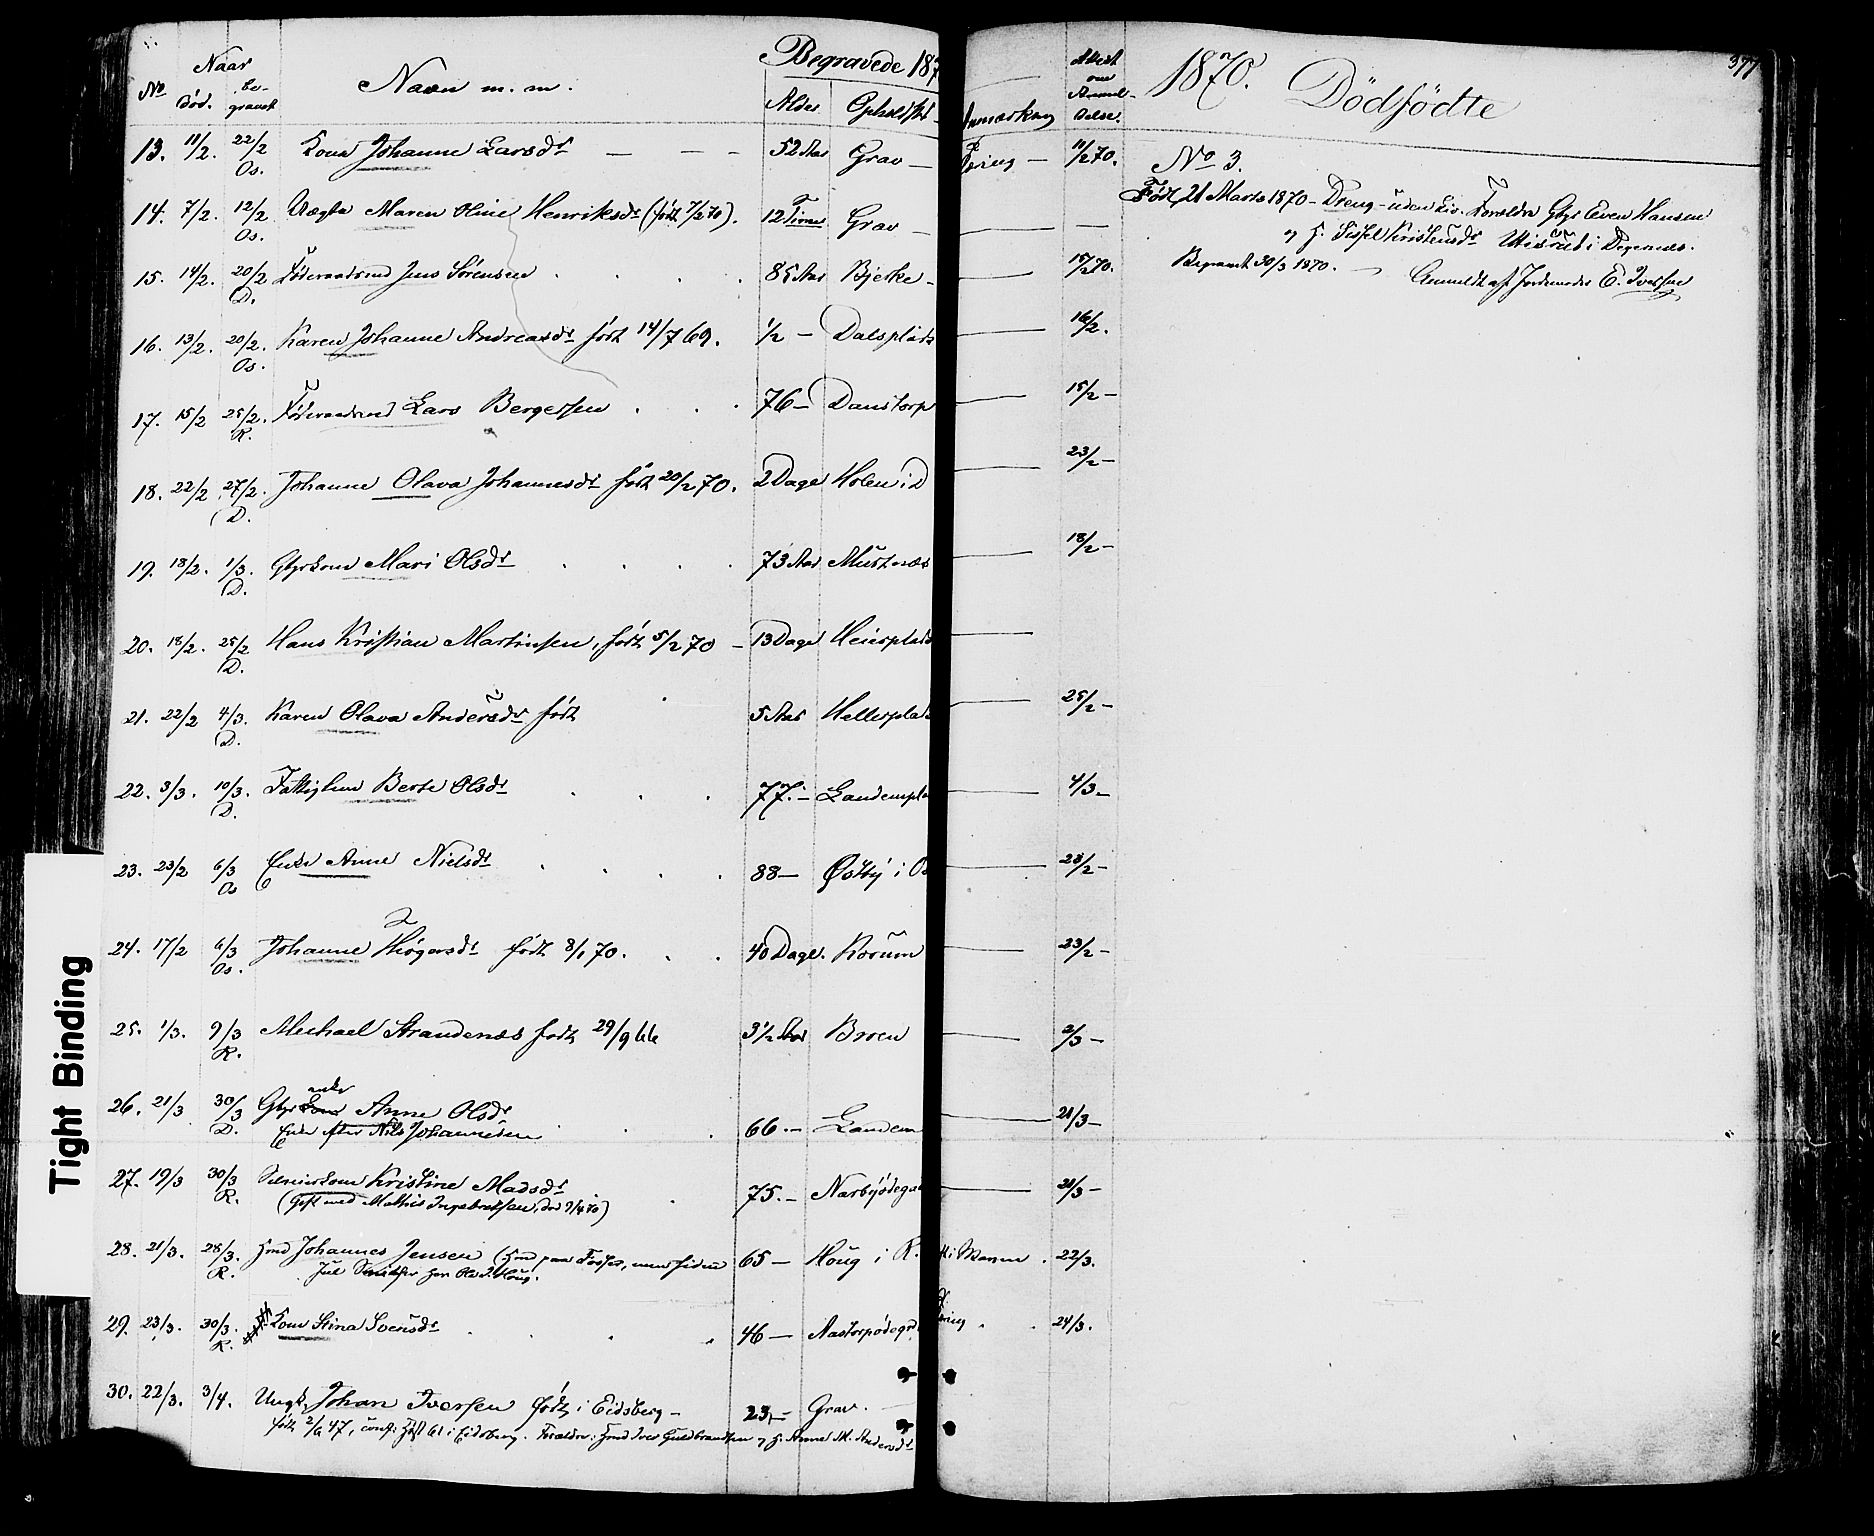 Begravede 187
No Naar Navn m. m. Alder Opholdsst
død. be-
gravet
13. 11/2. 22/2 Kone Johanne Larsdr — — — 52 Aar Grav —
Os.
14. 7/2. 12/2 Uægte Maren Oline Henriksdr (født 7/2 70). 12 Timer Grav —
Os.
15. 14/2. 20/2 Föderaadsmd Jens Sörensen . . . 85 Aar Bjerke -
D.
16. 13/2. 20/2. Karen Johanne Andreasdr født 14/7 69. 1/2 — Dalsplads
Os.
17. 15/2 25/2. Föderaadsmd Lars Bergersen . . . 76 — Danstorp
R.
18. 22/2 27/2. Johanne Olava Johannesdr født 20/2 70. 2 Dage Holen i D
D.
19. 18/2. 1/3. Gbrkone Mari Olsdr . . . . 73 Aar
D.
20. 18/2. 25/2 Hans Kristian Martinsen, født 5/2 70 — 13 Dage
D.
21. 22/2 4/3. Karen Olava Andersdr født 5 Aar
D.
22. 3/3. 10/3. Fattiglem Berte Olsdr . . . 77. —
D.
23. 23/2 6/3 Enke Anne Nielsdr . . . . 88 — Østby i Os
Os
24. 17/2 6/3 Johanne født 8/1 70. . . 40 Dage. Korum
Os.
25. 1/3. 9/3 Michael Strandenæs født 29/9 66 3 1/2 Aar Broen
R.
enke
26. 21/3 30/3 Gbr Kone Anne Olsdr
D. Enke efter Nils Johannesen . . 66. — Landem
27. 19/3 30/3 Kristine Madsdr 75. —
R. (Gift med Mathis Ingebretsen, død 9/4 70)
28. 21/3. 28/3. Hmd Johannes Jensen (Hmd paa Fosser, men siden 65 — Houg i R.
R. hos Ole J. Houg.
29. 23/3. 30/3. Kone Stina Svensdr . . . 46 —
R.
30. 22/3. 3/4. Ungk. Johan Iversen født i Eidsberg — 23, — Grav.
født 2/6 47, conf: Høst 61 i Eidsberg. Forældre: Hmd Iver Guldbrandsen og H. Anne M. Andersdr
Anmærkning Attest
om
Anmel-
delse.
— 11/2 70.
— —
— 15/2 70.
— 16/2.
— 15/2 —
— 23/2 —
— 18/2 —
—
— 25/2 —
— 4/3 —
— 23/2 —
— 23/2 —
— 2/3 —
— 21/3 —
— 21/3 —
22/3.
24/3.
377
1870. Dödfödte
No 3.
Född 21 Marts 1870 — Dreng — uden Liv. Forældre Gbr Even Hansen
og H. Sissel Kristensdr i Degernes.
Begravet 30/3 1870. — Anmeldt af Jordemoder E. Iversen
Tight Binding